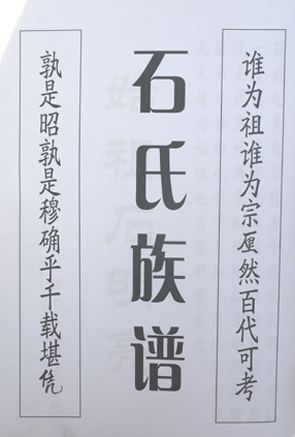 谁为祖谁为宗厘然百代可考
石氏族谱
孰是昭孰是穆确乎千载堪凭